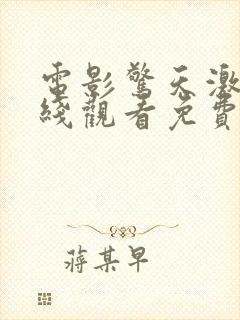 電影驚天激
綫觀看免費
蔣某早